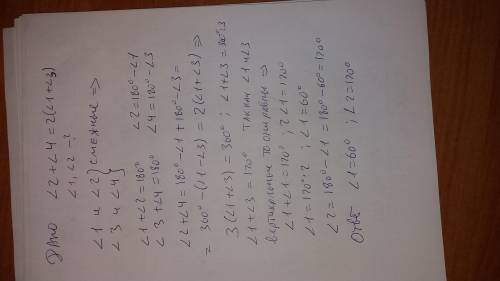 Дано ∠2+∠4=2(∠1+∠3)
∠1, ∠2 -?
∠1 и ∠2 } смежные =>
∠3 и ∠4 }
∠1+∠2=180° ∠2=180°-∠1
∠3+∠4=180° ∠4=180°-∠3
∠2+∠4=180°-∠1+180°-∠3=
=300°-(∠1-∠3)=2(∠1+∠3) =>
3(∠1+∠3)=300°; ∠1+∠3=
∠1+∠3=120° так как ∠1 и ∠3
вертикальные то они равны =>
∠1+∠1=120°; 2∠1=120°
∠1=120°:2; ∠1=60°
∠2=180°-∠1=180°-60°=120°
Ответ ∠1=60°; ∠2=120°